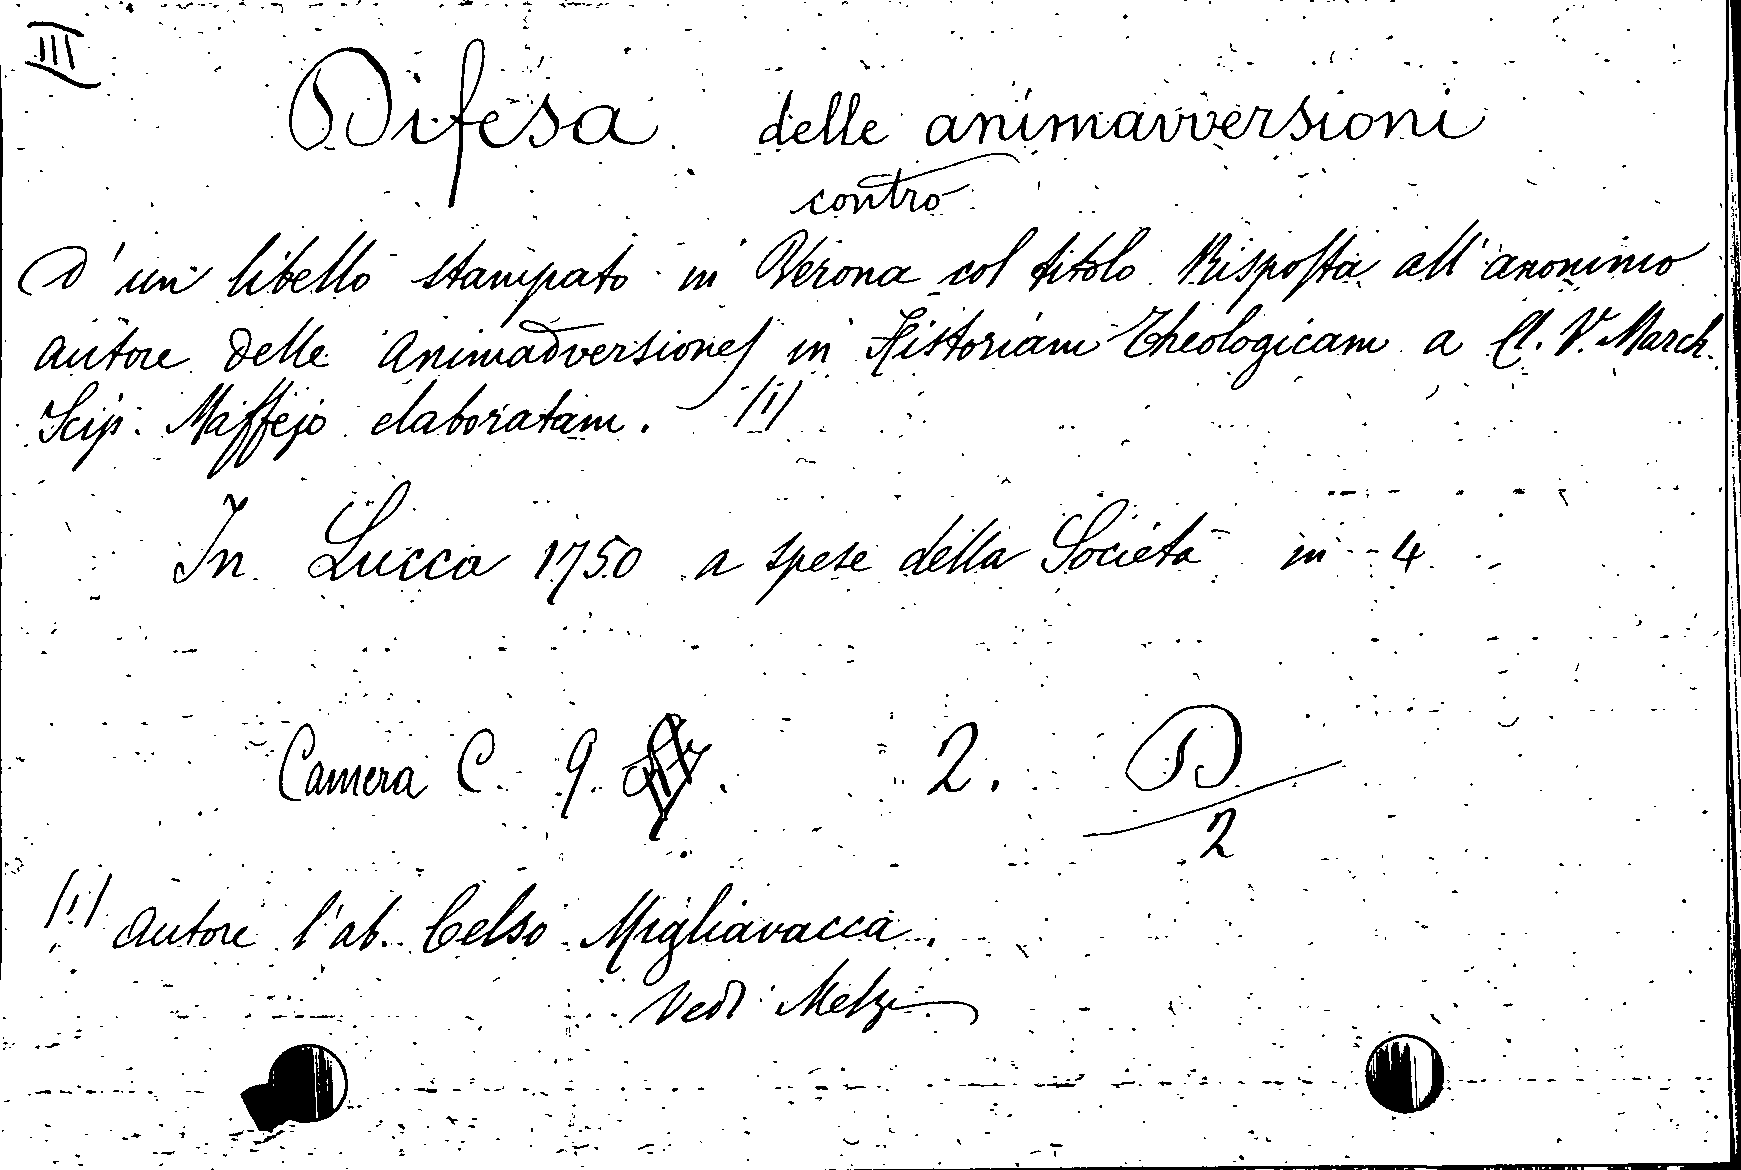 III
Difesa delle animavversioni
contro
D'un libello stampato in Verona col titolo Risposta all'anonimo
autore delle Animadversiones in Historiam Theologicam a Cl. V. March.
Scip. Maffejo elaboratam. (1)
In Lucca 1750 a spese della Società in 4
Camera C. 9. 2. D
2
(1) Autore l'ab. Celso Migliavacca.
Vedi Melz